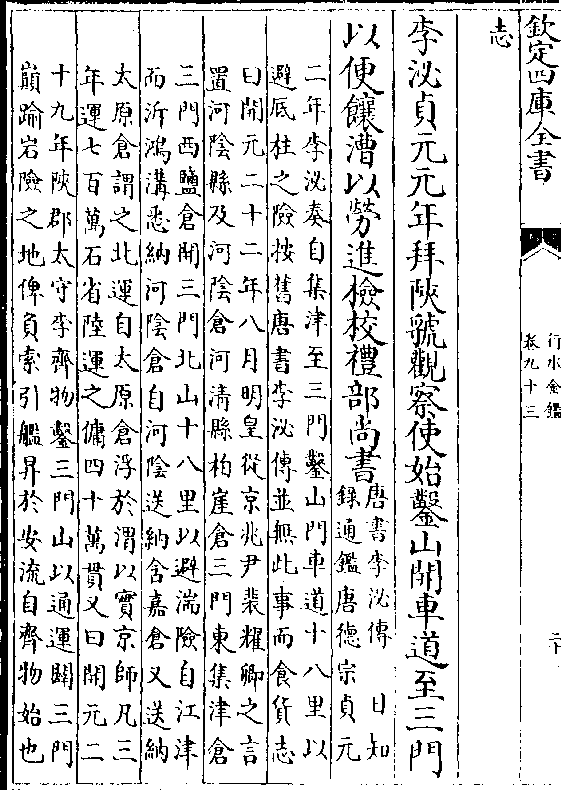 欽定四庫全書
行水金鑑
卷九十三
二十
志
李泌貞元元年拜陝虢觀察使始鑿山開車道至三門
以便饟漕以勞進檢校禮部尚書
唐書李泌傳　日知
錄通鑑唐德宗貞元
二年李泌奏自集津至三門鑿山門車道十八里以
避底柱之險按舊唐書李泌傳並無此事而食貨志
曰開元二十二年八月明皇從京兆尹裴耀卿之言
置河陰縣及河陰倉河清縣柏崖倉三門東集津倉
三門西鹽倉開三門北山十八里以避湍險自江津
而泝鴻溝悉納河陰倉自河陰送納含嘉倉又送納
太原倉謂之北運自太原倉浮於渭以實京師凡三
年運七百萬石省陸運之傭四十萬貫又曰開元二
十九年陝郡太守李齊物鑿三門山以通運闢三門
巔踰岩險之地俾負索引艦昇於安流自齊物始也